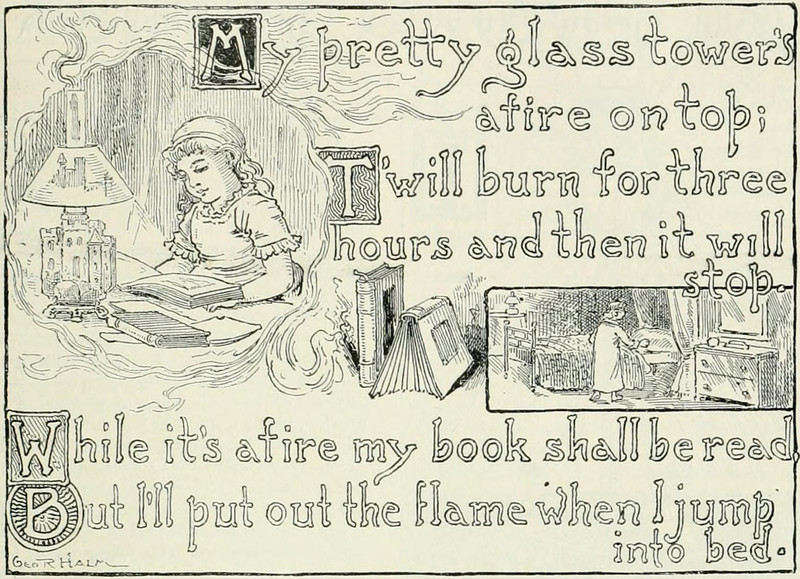 My pretty glass tower's
afire on top;
T'will burn for three
hours and then it will
stop.
While it's afire my book shall be read
But I'll put out the flame when I jump
into bed.
Geo R Halm